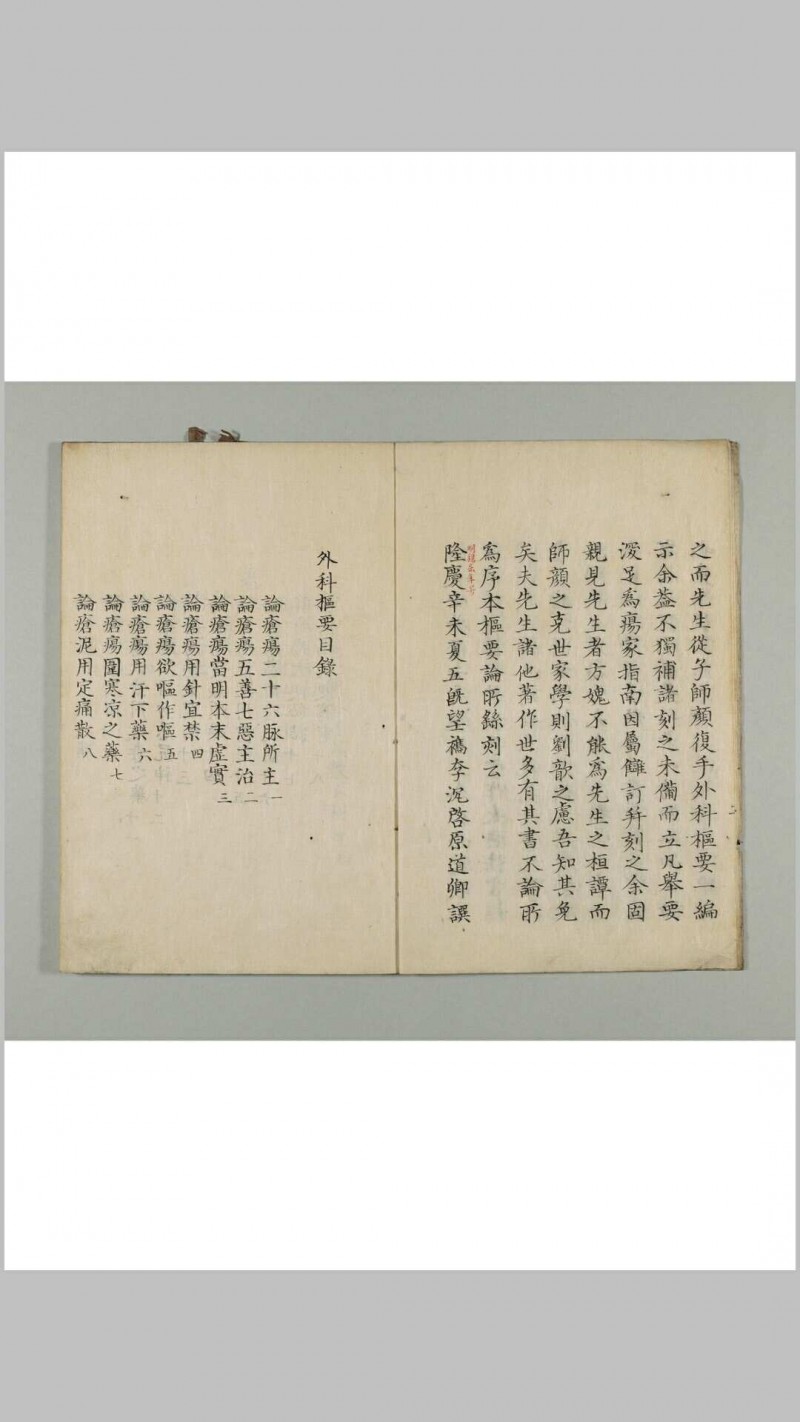 之而先生從子師顏復手外科樞要一編
示余葢不獨補諸刻之未備而立凡舉要
滚足為瘍家指南因屬讎訂幷刻之余固
親見先生者方媿不能為先生之桓譚而
師顏之克世家學則劉歆之慮吾知其免
矣夫先生諸他著作世多有其書不論所
為序本樞要論所繇刻云
隆慶辛未夏五既望檇李沉啓原道卿譔
二
外科樞要目錄
論瘡瘍二十六脉所主 一
論瘡瘍五善七惡主治 二
論瘡瘍當明本末虛實 三
論瘡瘍用針宜禁 四
論瘡瘍欲嘔作嘔 五
論瘡瘍用汗下藥 六
論瘡瘍圍寒凉之藥 七
論瘡泥用定痛散 八